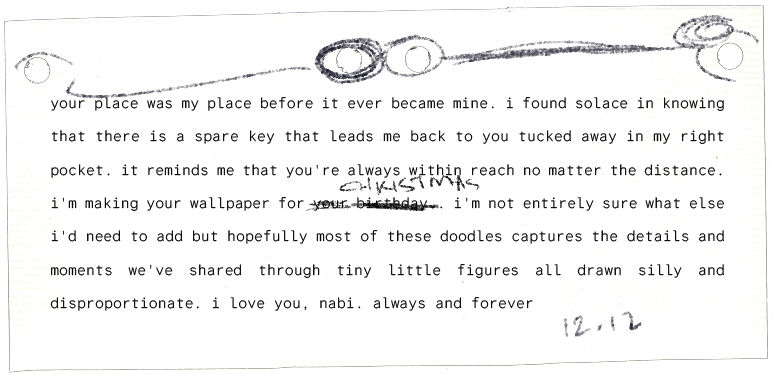 your place was my place before it ever became mine. i found solace in knowing
that there is a spare key that leads me back to you tucked away in my right
pocket. it reminds me that you're always within reach no matter the distance.
CHRISTMAS
i'm making your wallpaper for your birthday.. i'm not entirely sure what else
i'd need to add but hopefully most of these doodles captures the details and
moments we've shared through tiny little figures all drawn silly and
disproportionate. i love you, nabi. always and forever
12.12